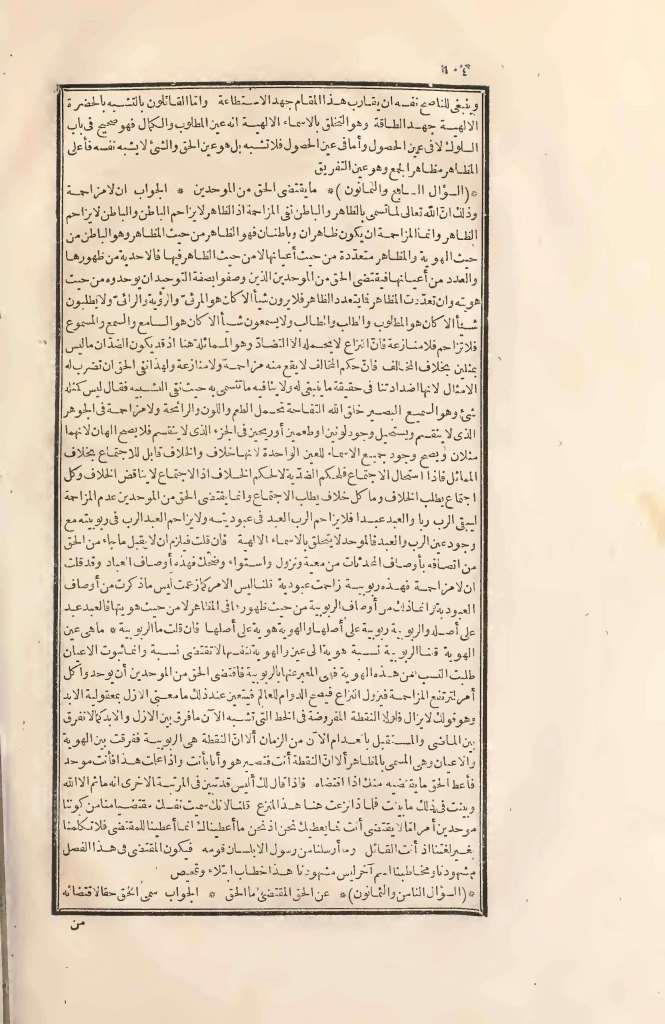 ١٠٤
وينبغى للناصح نفسه ان يقارب هذا المقام جهد الاستطاعة واما القائلون بالتشبه بالحضرة
الالهية جهد الطاقة وهو التخلق بالاسماء الالهية انه عين المطلوب والكمال فهو صحيح فى باب
السلوك لا فى عين الحصول وأما فى عين الحصول فلا تشبه بل هو عين الحق والشئ لا يشبه نفسه فأعلى
المظاهر مظاهر الجمع وهو عين التفريق
*(السؤال السابع والثمانون)* ما يقتضى الحق من الموحدين * الجواب ان لا مزاحمة
وذلك انّ الله تعالى لما تسمى بالظاهر والباطن نفى المزاحمة اذ الظاهر لا يزاحم الباطن والباطن لا يزاحم
الظاهر وانما المزاحمة ان يكون ظاهران وباطنان فهو الظاهر من حيث المظاهر وهو الباطن من
حيث الهوية والمظاهر متعدّدة من حيث أعيانها لا من حيث الظاهر فيها فالاحدية من ظهورها
والعدد من أعيانها فيقتضى الحق من الموحدين الذين وصفوا بصفة التوحيد ان يوحدوه من حيث
هويته وان تعدّدت المظاهر فما تعدد الظاهر فلا يرون شيأ الا كان هو المرئى والرؤية والرائى ولا يطلبون
شيأ الا كان هو المطلوب والطلب والطالب ولا يسمعون شيأ الا كان هو السامع والسمع والمسموع
فلا تزاحم فلا منازعة فانّ النزاع لا يحمله الا التضادّ وهو المماثلة هنا اذ قد يكون الضدّان ما ليس
بمثلين بخلاف المخالف فانّ حكم المخالف لا يقع منه مزاحمة ولا منازعة ولهذا نفى الحق ان تضرب له
الامثال لانها اضداد تنافى حقيقة ما ينبغى له ولا ينافيه ما تسمى به حيث نفى التشبيه فقال ليس كمثله
شئ وهو السميع البصير خلق الله التفاحة تحمل الطعم واللون والرائحة ولا مزاحمة فى الجوهر
الذى لا ينقسم ويستحيل وجود لونين او طعمين أو ريحين فى الجزء الذى لا ينقسم فلا يصح الهان لانهما
مثلان ويصح وجود جميع الاسماء للعين الواحدة لانها خلاف والخلاف قابل للاجتماع بخلاف
المماثل فاذا استحال الاجتماع فلحكم الضدّية لا لحكم الخلاف اذ الاجتماع لا يناقض الخلاف وكل
اجتماع يطلب الخلاف وما كل خلاف يطلب الاجتماع وانما يقتضى الحق من الموحدين عدم المزاحمة
ليبقى الرب ربا والعبد عبدا فلا يزاحم الرب العبد فى عبوديته ولا يزاحم العبد الرب فى ربوبيته مع
وجود عين الرب والعبد فالموحد لا يتخلق بالاسماء الالهية فان قلت فيلزم ان لا يقبل ما جاء من الحق
من اتصافه بأوصاف المحدثات من معية ونزول واستواء وضحك فهذه أوصاف العباد وقد قلت
ان لا مزاحمة فهذه ربوبية زاحمت عبودية قلنا ليس الامر كما زعمت ليس ما ذكرت من أوصاف
العبودية وانما ذلك من أوصاف الربوبية من حيث ظهورها فى المظاهر لا من حيث هويتها فالعبد عبد
على أصله والربوبية ربوبية على أصلها والهوية هوية على أصلها فان قلت فالربوبية * ما هى عين
الهوية قلنا الربوبية نسبة هوية الى عين والهوية لنفسها لا تقتضى نسبة وانما ثبوت الاعيان
طلبت النسب من هذه الهوية فهى المعبر عنها بالربوبية فاقتضى الحق من الموحدين أن يوحدوا كل
أمر لترتفع المزاحمة فيزول النزاع فيصح الدوام للعالم فيتعين عند ذلك ما معنى الازل بمعقولية الابد
وهو قولك لا يزال فلولا النقطة المفروضة فى الخط التى تشبه الآن ما فرق بين الازل والابد كما لا تفرق
بين الماضى والمستقبل بانعدام الآن من الزمان ألا انّ النقطة هى الربوبية ففرقت بين الهوية
والاعيان وهى المسمى بالمظاهر ألا انّ النقطة أنت فتميز هو وأنا بأنت واذا علمت هذا فأنت موحد
فأعط الحق ما يقتضيه منك اذا اقتضاه فاذا قال لك أليس قد تبين فى المرتبة الاخرى انه ما ثم الا الله
وبينت فى ذلك ما بينت فلماذا نزعت هنا هذا المنزع قلنا لانك سميت نفسك مقتضيا منا من كوننا
موحدين أمرا ما لا يقتضى أنت مما يعطيك نحن اذ نحن ما أعطيناك انما أعطينا للمقتضى فلا تكلمنا
بغير لغتنا اذ أنت القائل وما أرسلنا من رسول الا بلسان قومه فيكون المقتضى فى هذا الفصل
مشهودنا ومخاطبنا اسم آخر ليس مشهودنا هذا خطاب ابتلاء وتمحيص
*(السؤال الثامن والثمانون)* عن الحق المقتضى ما الحق * الجواب سمى الحق حقا لاقتضائه
من